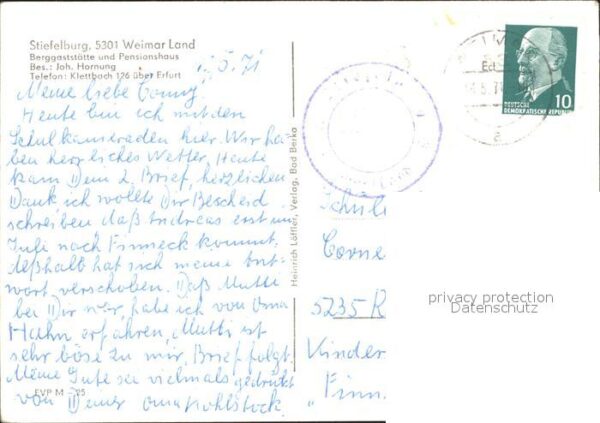 Stiefelburg, 5301 Weimar Land
Berggaststätte und Pensionshaus
Bes.: Joh. Hornung
Telefon: Klettbach 126 über Erfurt
5.71
Meine liebe Conny!
Heute bin ich mit den
Schulkameraden hier. Wir ha-
ben herzliches Wetter. Heute
kam Dein 2. Brief, herzlichen
Dank ich wollte Dir Bescheid
schreiben daß Andreas erst im
Juli nach Finneck kommt.
deßhalb hat sich meine Ant-
wort verschoben. Daß Mutti
bei Dir war, habe ich von Oma
Hahn erfahren, Mutti ist
sehr böse zu mir, Brief folgt.
Meine Gute sei vielmals gedrückt
von Deiner Oma Kohlstock
EVP M –.25
Heinrich Löffler, Verlag, Bad Berka
DEUTSCHE
DEMOKRATISCHE REPUBLIK
10
5.71
a
Schüle
Corne
5235 R
Kinder
"Finn
privacy protection
Datenschutz